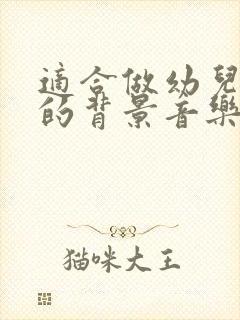 適合做幼兒
的背景音樂
猫咪大王